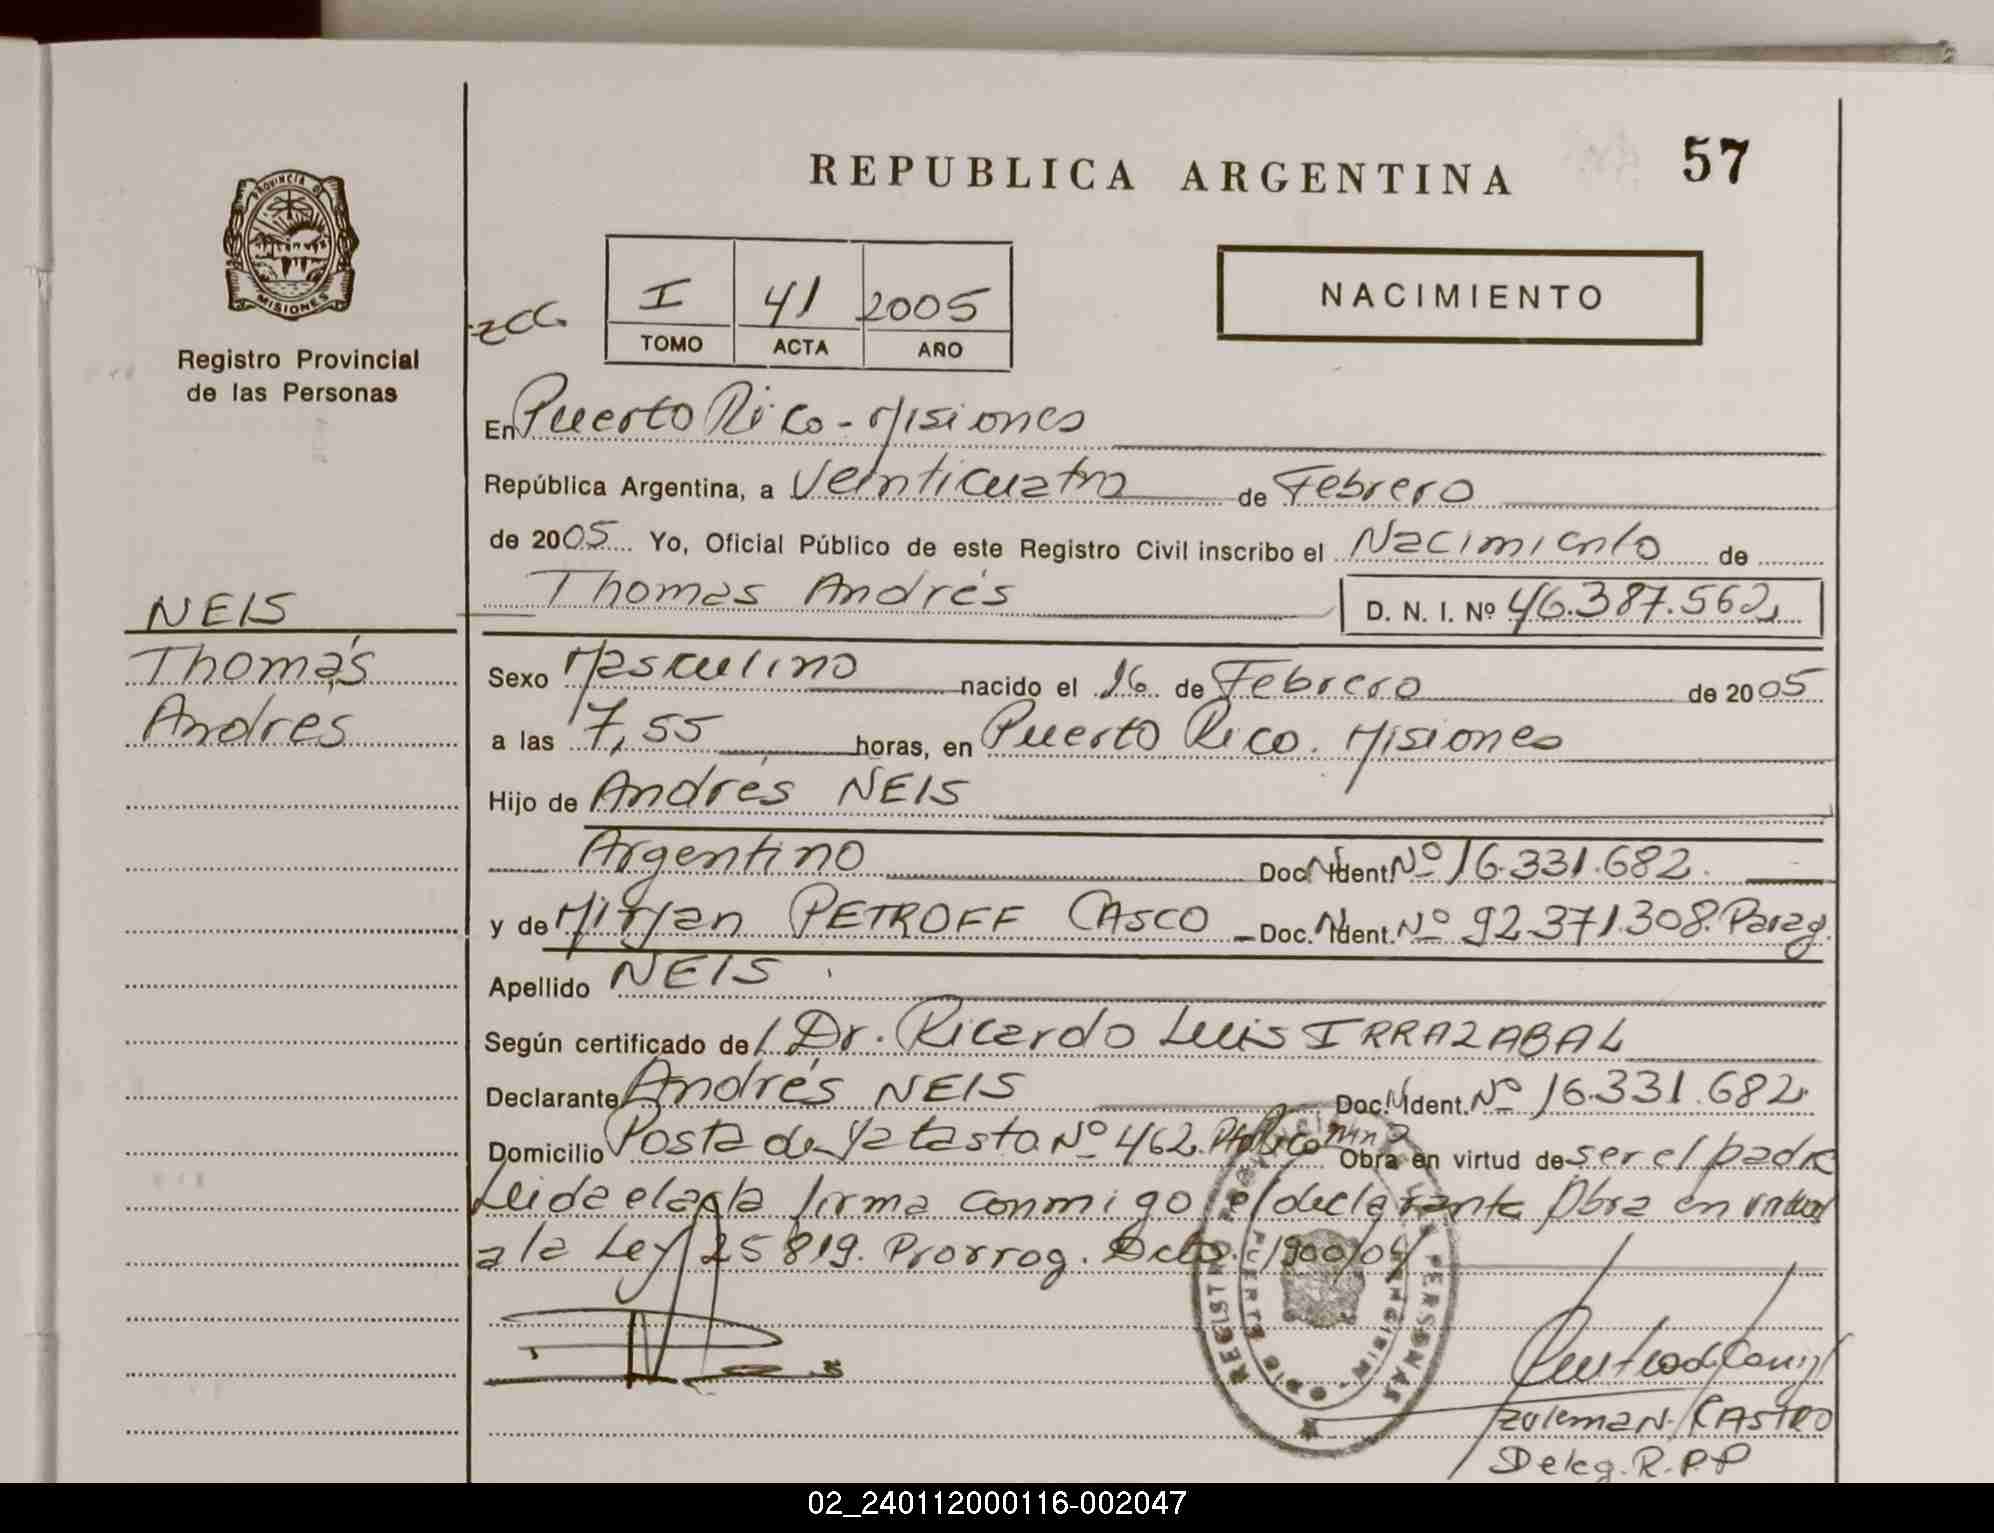 REPUBLICA ARGENTINA
57
PROVINCIA D
MISIONES
Registro Provincial
de las Personas
NACIMIENTO
I 41 2005
TOMO ACTA AÑO
En Puerto Rico - Misiones
República Argentina, a Veinticuatro de Febrero
de 2005 Yo, Oficial Público de este Registro Civil inscribo el Nacimiento de
Thomas Andrés D. N. I. Nº 46.387.562
NEIS
Thomás
Andres
Sexo Masculino nacido el 16 de Febrero de 2005
a las 7,55 horas, en Puerto Rico. Misiones
Hijo de Andrés NEIS
Argentino Doc. Ident. Nº 16.331.682.
y de Miryan PETROFF CASCO Doc. Ident. Nº 92.371.308. Parag.
Apellido NEIS
Según certificado de l Dr. Ricardo Luis IRRAZABAL
Declarante Andrés NEIS Doc. Ident. Nº 16.331.682.
Domicilio Posta de Yatasto Nº 462. Pto Rico Mnes Obra en virtud de ser el padre
Leida el acta firma conmigo el declarante Obra en virtud
a la Ley 25819. Prorrog. Dcto. 1900/04
REGISTRO PERSONAS
PUERTO
Zulema N. CASTRO
Deleg. R.P.P
02_240112000116-002047